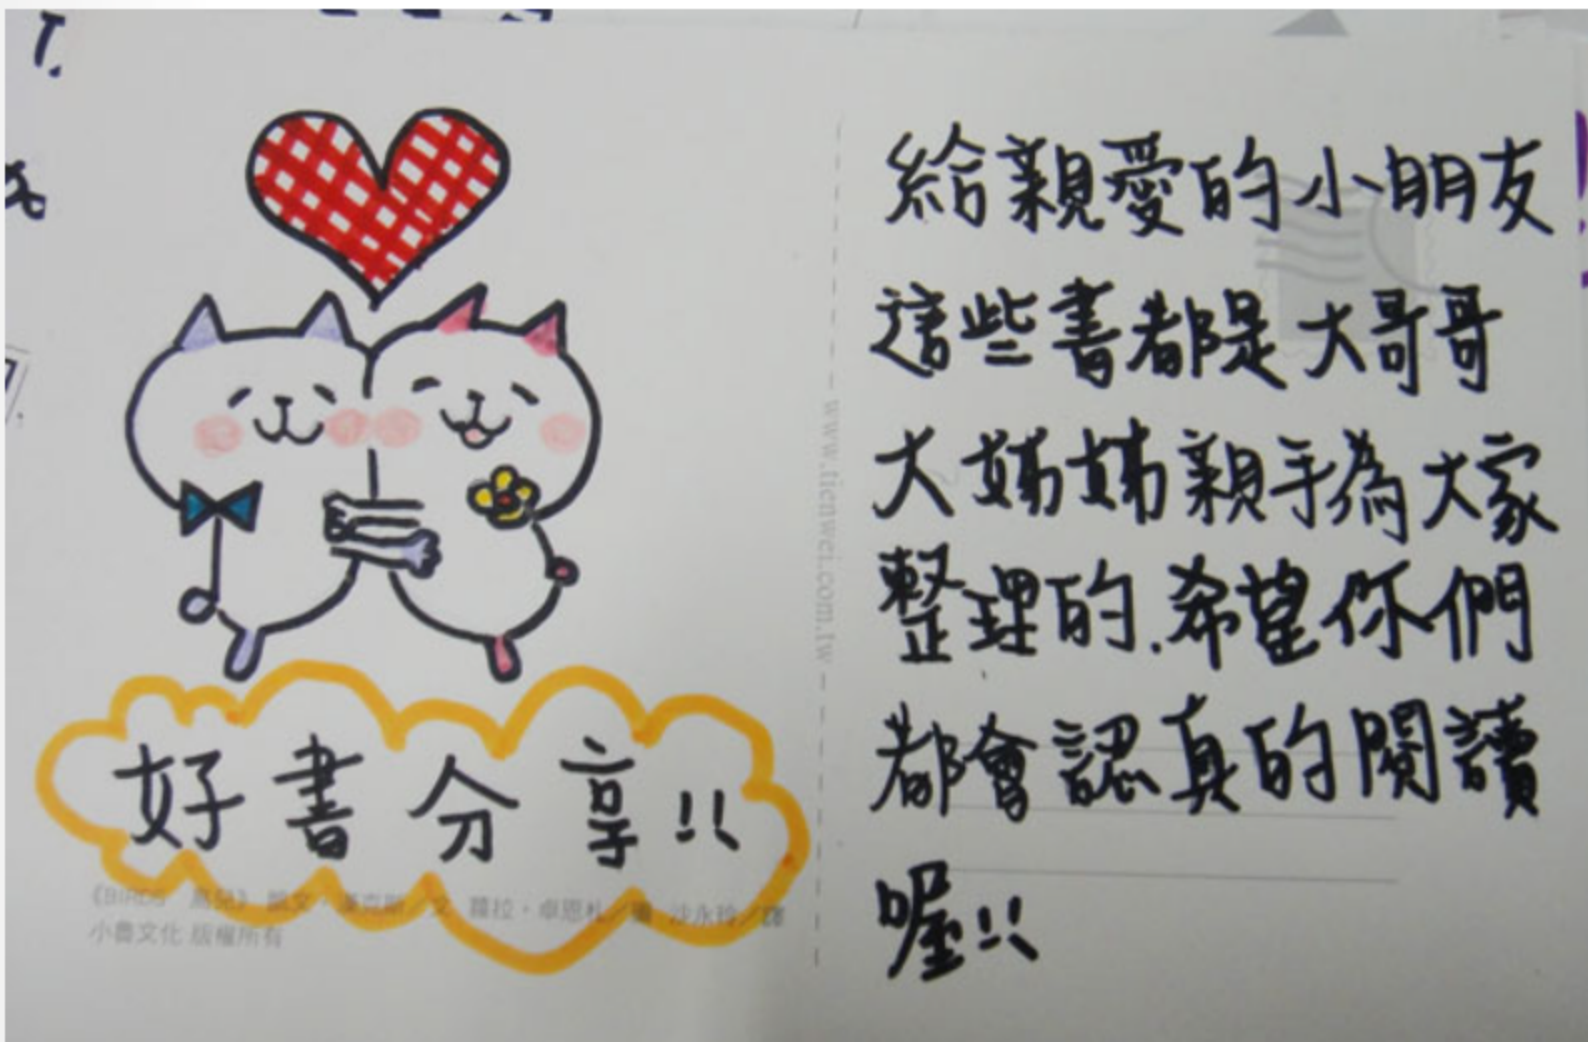 好書分享!!
《BIRDS 鳥兒》 凱文·漢克斯/文 蘿拉·卓恩札/圖 沙永玲/譯
小魯文化 版權所有
www.tienwei.com.tw
給親愛的小朋友
這些書都是大哥哥
大姊姊親手為大家
整理的.希望你們
都會認真的閱讀
喔!!